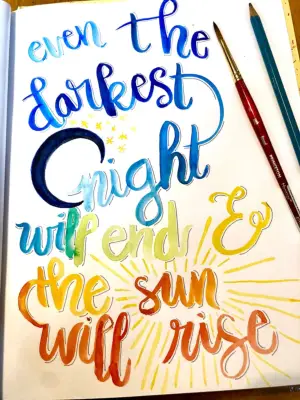 even the
darkest
night
will end &
the sun
will rise